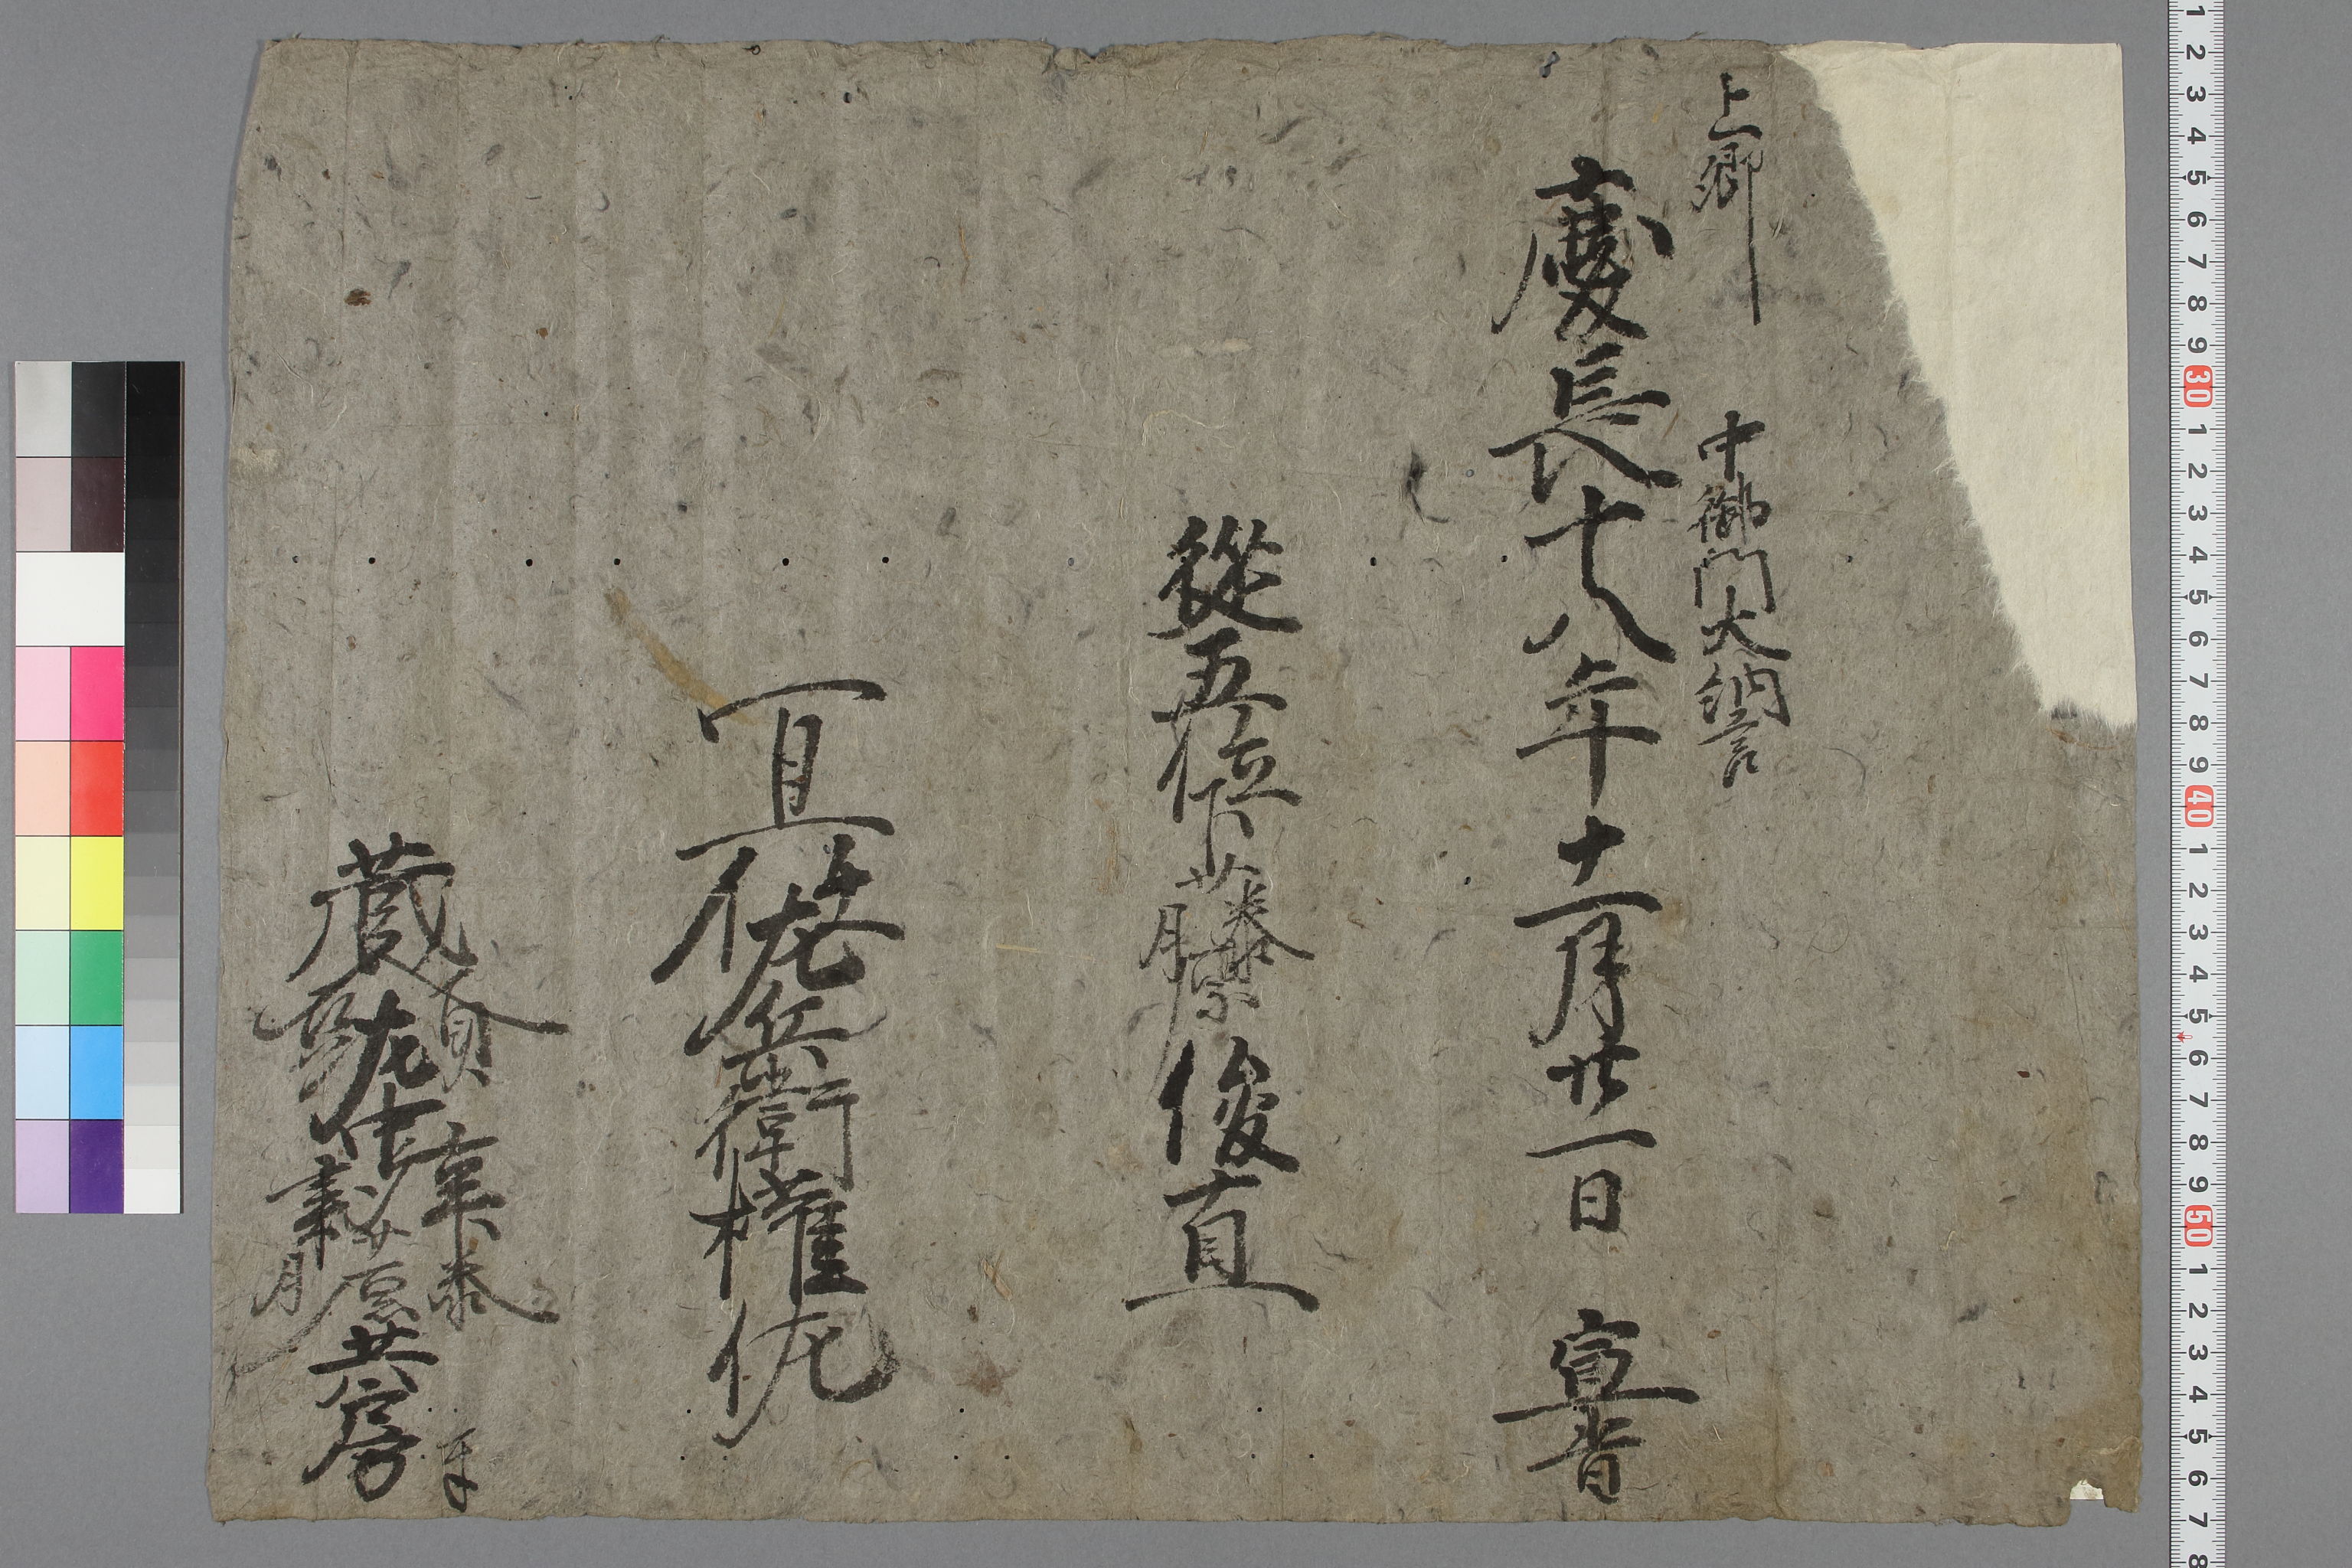 上卿 中御門大納言
慶長十八年十一月廿一日 宣旨
從五位下藤原俊直
宜任左兵衛權佐
蔵人頭左中辨藤原共房奉